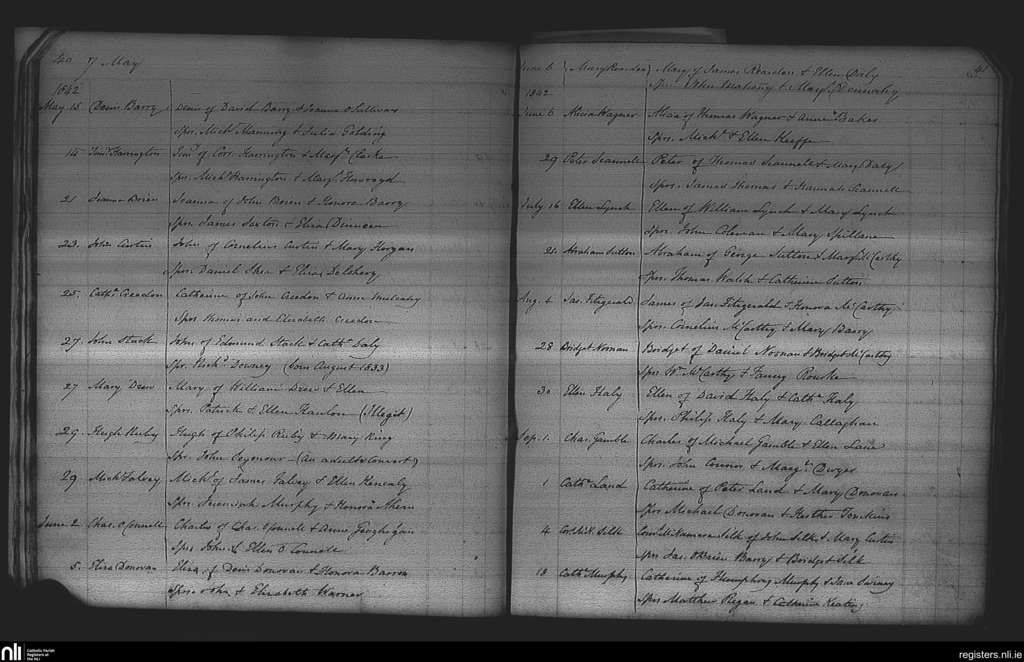 40 7 May
1842
May 15 Denis Barry Denis of David Barry & Joanna O'Sullivan
Spor. Michl Manning & Julia Golding
14 Timy Harrington Timy of Corn. Harrington & Margt Clarke
Spor. Michl Harrington & Margt
21 Joanna Brien Joanna of John Brien & Honora Barry
Spors. James Saxton & Eliza Dinneen
23. John Curtin John of Cornelius Curtin & Mary Horgan
Spor. Daniel Shea & Eliza Delahery
25. Cathe. Creedon Catherine of John Creedon & Anne Mulcahy
Spors Thomas and Elizabeth Creedon
27. John Stack John of Edmund Stack & Cathe Daly
Spr. Richd Downey (born August 1833)
27 Mary Drew Mary of William Drew & Ellen
Spors. Patrick & Ellen Hanlon (Illegit)
29. Hugh Ruby Hugh of Philip Ruby & Mary King
Spr. John Seymour - (An adult & Convert)
29 Michl Falvey Michl of James Falvey & Ellen Kenealy
Spors. Jeremiah Murphy & Honora Ahern
June 2. Chas. O'Connell Charles of Chas. O'Connell & Anne Gaughegan
Spors John & Ellen O'Connell
5. Eliza Donovan Eliza of Denis Donovan & Honora Barron
Spors. John & Elizabeth Warner
41
June 6 Mary Reardon Mary of James Reardon & Ellen Daly
Spors. John Mahony & Mary
1842
June 6 Alicia Wagner Alicia of Thomas Wagner & Anne Baker
Spors. Michl & Ellen Keeffe
29 Peter Scannell Peter of Thomas Scannell & Mary Daly
Spors. James Thomas & Hannah Scannell
July 16 Ellen Lynch Ellen of William Lynch & Mary Lynch
Spors. John Coleman & Mary Spillane
21. Abraham Sutton Abraham of George Sutton & Margt McCarthy
Spors. Thomas Walsh & Catherine Sutton
Aug. 4 Jas. Fitzgerald James of Jas. Fitzgerald & Honora McCarthy
Spors. Cornelius McCarthy & Mary Barry
28 Bridget Noonan Bridget of Daniel Noonan & Bridget McCarthy
Spors Wm McCarthy & Fanny Rourke
30 Ellen Haly Ellen of David Haly & Cathe Haly
Spors. Philip Haly & Mary Callaghan
Sep. 1. Chas. Gamble Charles of Michael Gamble & Ellen Lane
Spors. John Connor & Margt Dwyer
1 Cathe Land Catherine of Peter Land & Mary Donovan
Spors. Michael Donovan & Hesther Tomkins
4 Silk McNamara Silk of John Silk & Mary Curtin
Spors Jas. O'Brien Barry & Bridget Silk
18 Cathe Murphy Catherine of Humphrey Murphy & Jane Swiney
Spors Matthew Regan & Catherine Keating
nli Catholic Parish
Registers at
the NLI
registers.nli.ie